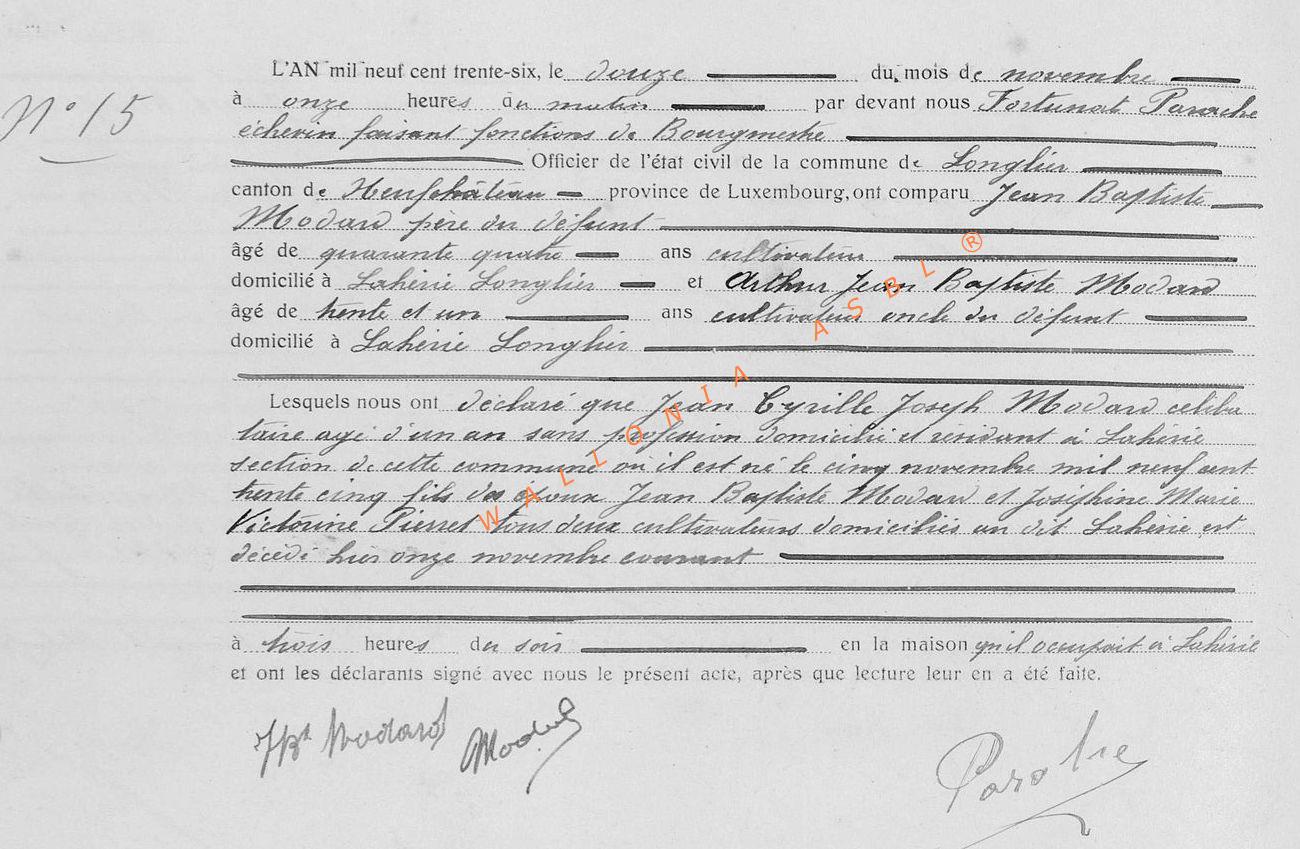 L'AN mil neuf cent trente-six, le douze du mois de novembre
N° 15
à onze heures du matin par devant nous Fortunat Parache
échevin faisant fonctions de Bourgmestre
Officier de l'état civil de la commune de Longlier
canton de Neufchâteau province de Luxembourg, ont comparu Jean Baptiste
Modard père du défunt
âgé de quarante quatre ans cultivateur
domicilié à Lahérie Longlier et Arthur Jean Baptiste Modard
âgé de trente et un ans cultivateur oncle du défunt
domicilié à Lahérie Longlier
Lesquels nous ont déclaré que Jean Cyrille Joseph Modard céliba
taire agé d'un an sans profession domicilié et résidant à Lahérie
section de cette commune où il est né le cinq novembre mil neuf cent
trente cinq fils des époux Jean Baptiste Modard et Joséphine Marie
Victorine Pierret tous deux cultivateurs domiciliés au dit Lahérie est
décédé hier onze novembre courant
à trois heures du soir en la maison qu'il occupait à Lahérie
et ont les déclarants signé avec nous le présent acte, après que lecture leur en a été faite.
JBt Modard Modard
WALLONIA ASBL ®